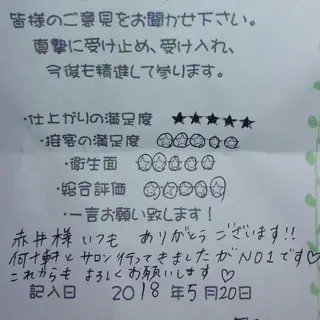 皆様のご意見をお聞かせ下さい。
真摯に受け止め、受け入れ、
今後も精進して参ります。
・仕上がりの満足度 ★★★★★
・接客の満足度 ☆☆☆☆☆
・衛生面 ☆☆☆☆☆
・総合評価 ☆☆☆☆☆
・一言お願い致します！
赤井様 いつも ありがとうございます!!
何十軒とサロン行ってきましたがNO1です♡
これからも よろしくお願いします♡
記入日 2018年5月20日